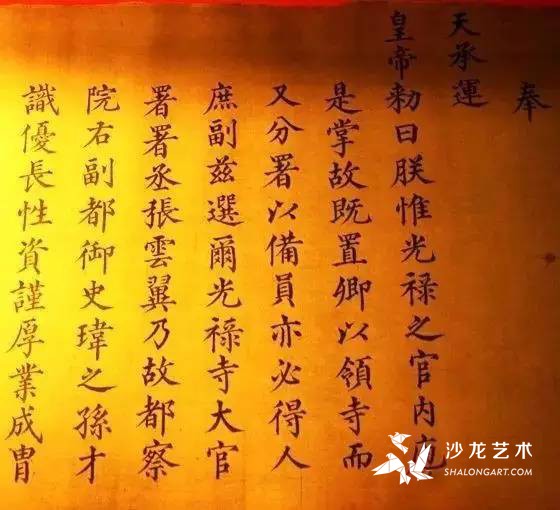 奉
天承運
皇帝勑曰朕惟光禄之官内庖
是掌故既置卿以領寺而
又分署以備員亦必得人
庶副兹選爾光禄寺大官
署署丞張雲翼乃故都察
院右副都御史瑋之孫才
識優長性資謹厚業成胄
沙龙艺术
SHALONGART.COM